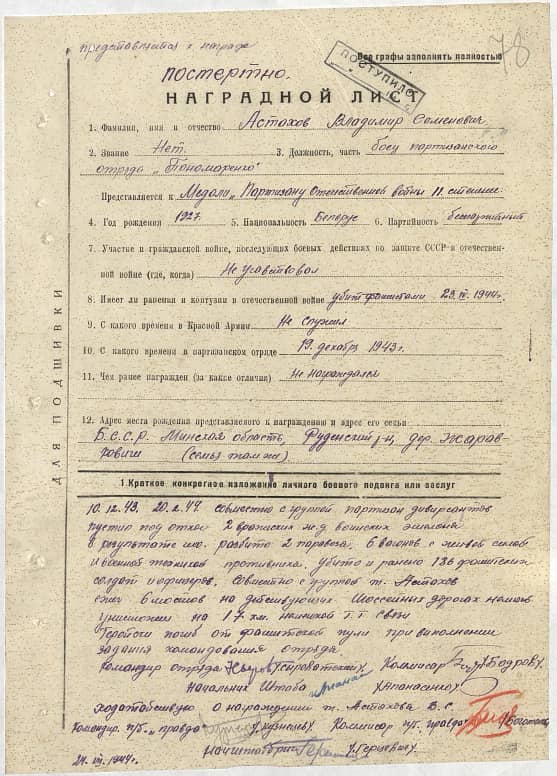 представляется к награде
Все графы заполнять полностью
78
ПОСТУПИЛО
посмертно.
НАГРАДНОЙ ЛИСТ
1. Фамилия, имя и отчество Астахов Владимир Семенович
2. Звание Нет. 3. Должность, часть боец партизанского
отряда „Пономаренко"
Представляется к Медали „Партизану Отечественной войны II степени
4. Год рождения 1927 5. Национальность Белорус 6. Партийность беспартийный
7. Участие в гражданской войне, последующих боевых действиях по защите СССР и отечествен-
ной войне (где, когда) Не участвовал
8. Имеет ли ранения и контузии в отечественной войне убит фашистами 1944 г.
9. С какого времени в Красной Армии Не служил
10. С какого времени в партизанском отряде 19. декабря 1943 г.
11. Чем ранее награжден (за какие отличия) Не награждался
12. Адрес места рождения представляемого к награждению и адрес его семьи
Б.С.С.Р. Минская область, Руденский р-н, дер. Жарав-
(семья там же)
ДЛЯ ПОДШИВКИ
1. Краткое конкретное изложение личного боевого подвига или заслуг
10.12.43, 20.2.44 совместно с группой партизан диверсантов
пустил под откос 2 вражеских ж.д воинских эшелона
В результате разбито 2 паровоза, 6 вагонов с живой силой
и военной техникой противника. Убито и ранено 136 фашистских
солдат и офицеров. Совместно с группой т. Астахов
сжег 6 мостов на действующих шоссейных дорогах
уничтожил 17 км. Т.Т связи
Геройски погиб от фашистской пули при выполнении
задания командования отряда.
Командир отряда Комиссар /Бодров/
Начальник Штаба /Апанасенко/
Ходатайствую о награждении т. Астахова В.С.
Командир п/б. „Правда" /Кузнецов/ Комиссар п/б. Правда
Начштаба /Герцевич/
1944 г.